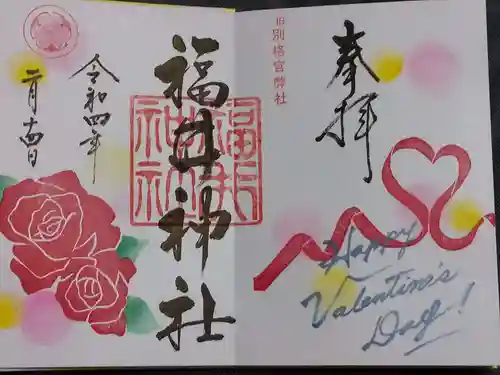 旧別格官弊社
奉拝
Happy
Valentine's
Day!
福井神社
福井
神社
令和四年
二月十四日